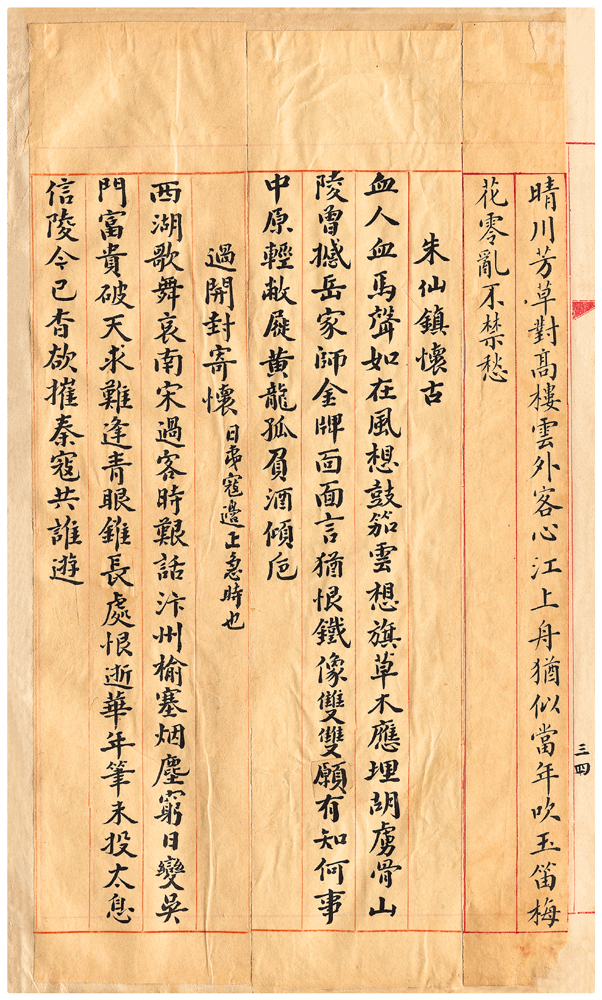 三四
晴川芳草對高樓雲外客心江上舟猶似當年吹玉笛梅
花零亂不禁愁
朱仙鎮懷古
血人血馬聲如在風想鼓笳雲想旗草木應埋胡虜骨山
陵曾撼岳家師金牌面面言猶恨鐵像雙雙願有知何事
中原輕敝屣黄龍孤負酒傾卮
過開封寄懷 日夷寇邊上急時也
西湖歌舞哀南宋過客時艱話汴州榆塞烟塵窮日變吳
門富貴破天求難逢青眼錐長處恨逝華年筆未投太息
信陵今已杳欲摧秦寇共誰遊